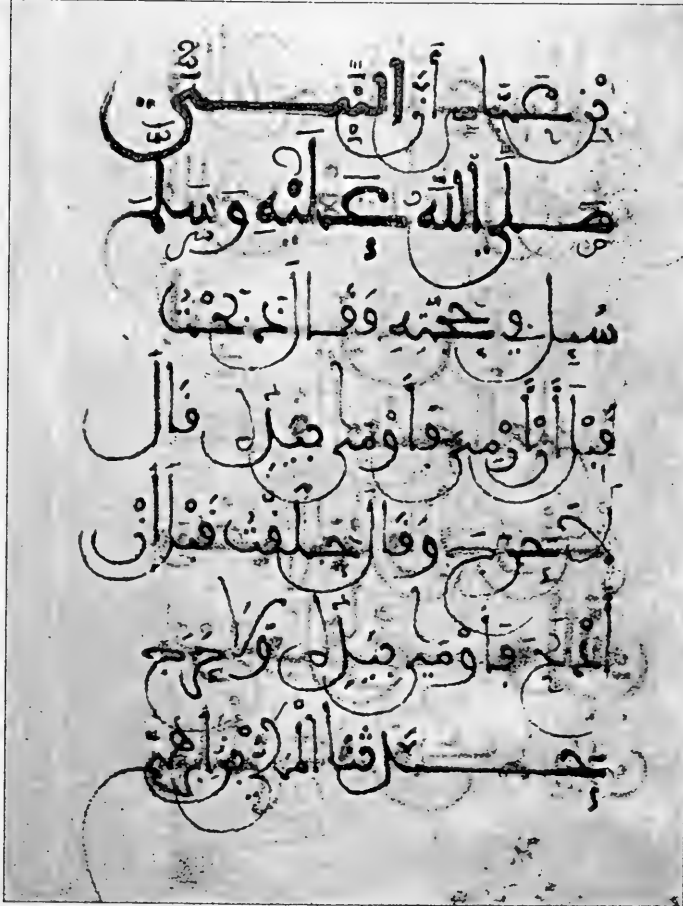 بن عباس أن النبي
صلى الله عليه وسلم
سئل في حجته وقال ذبحت
قبل أن أرمي فأومى بيده قال
لا حرج وقال حلقت قبل أن
أذبح فأومى بيده ولا حرج
حدثنا